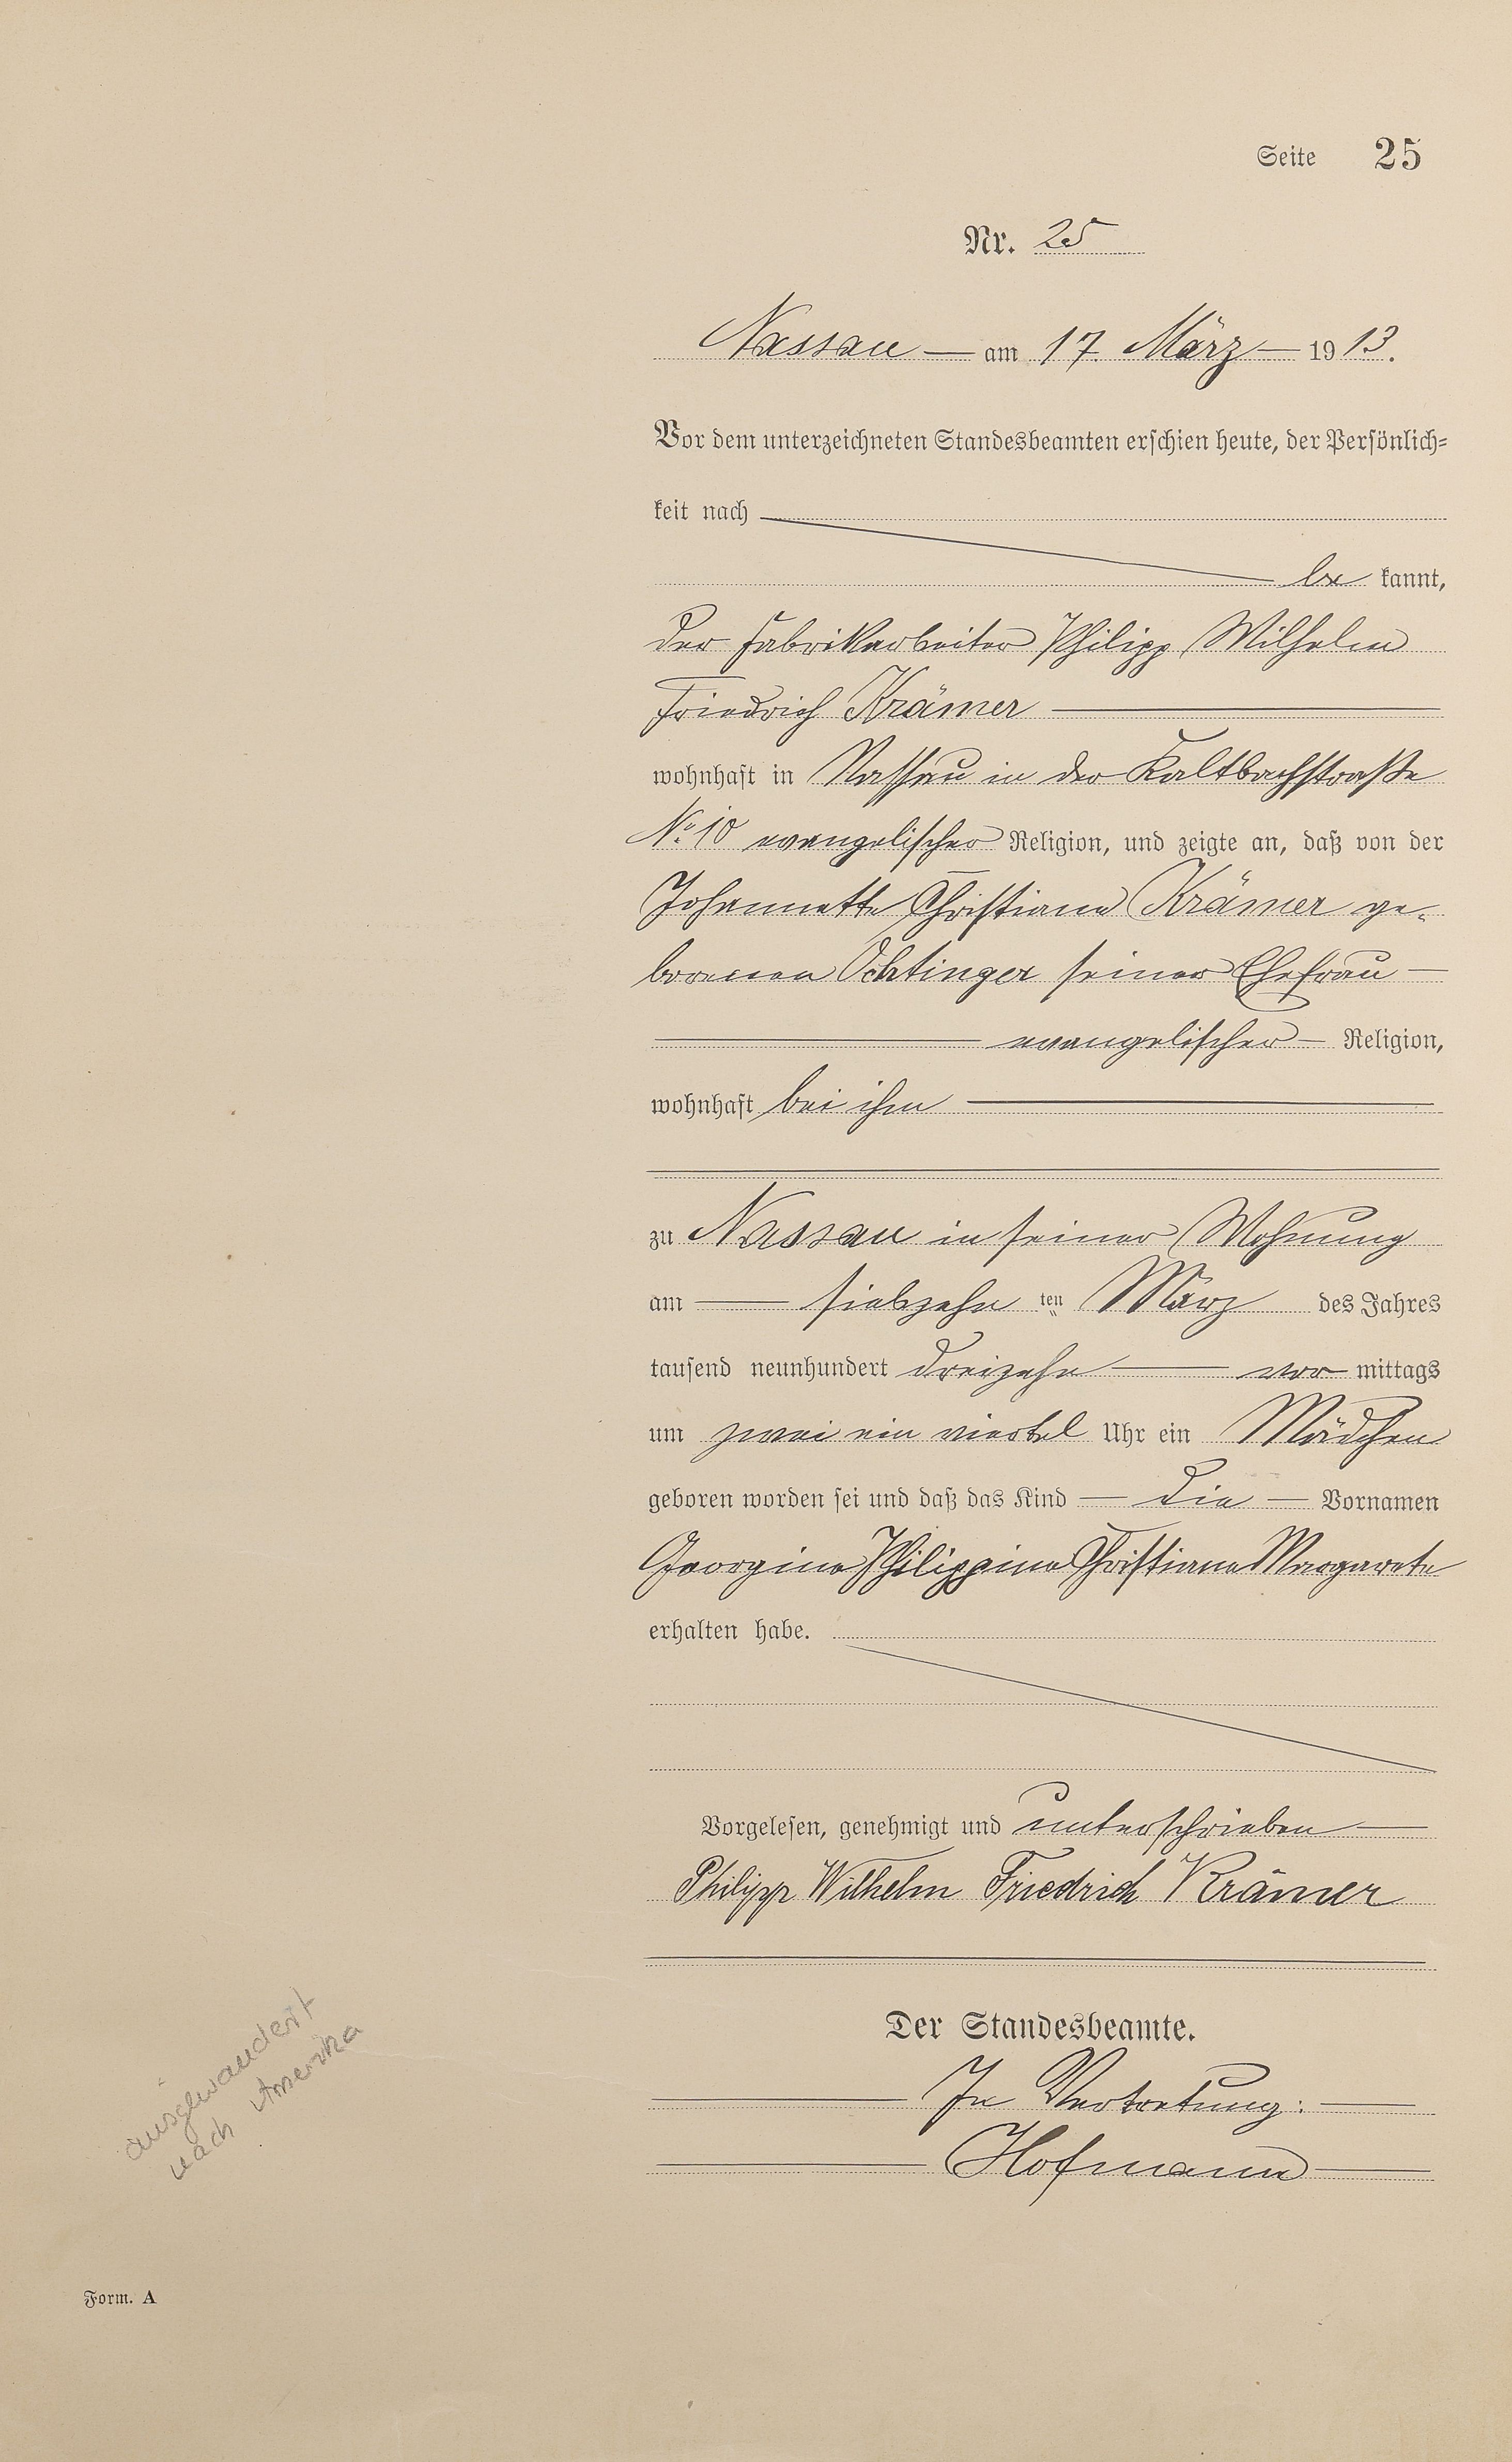 Seite 25
Nr. 25
Nassau — am 17. März — 1913.
Vor dem unterzeichneten Standesbeamten erschien heute, der Persönlich=
keit nach
be kannt,
der Fabrikarbeiter Philipp Wilhelm
Friedrich Krämer
wohnhaft in Nassau in der Kaltbachstraße
No. 10 evangelischer Religion, und zeigte an, daß von der
Johannette Christiane Krämer ge-
borenen Ochtinger seiner Ehefrau —
evangelischer — Religion,
wohnhaft bei ihm
zu Nassau in seiner Wohnung
am — siebzehn ten März des Jahres
tausend neunhundert dreizehn — vor mittags
um zwei ein viertel Uhr ein Mädchen
geboren worden sei und daß das Kind — die — Vornamen
Georgine Philippine Christiane Margarete
erhalten habe.
Vorgelesen, genehmigt und unterschrieben —
Philipp Wilhelm Friedrich Krämer
Der Standesbeamte.
In Vertretung: —
Hofmann —
ausgewandert
nach Amerika
Form. A